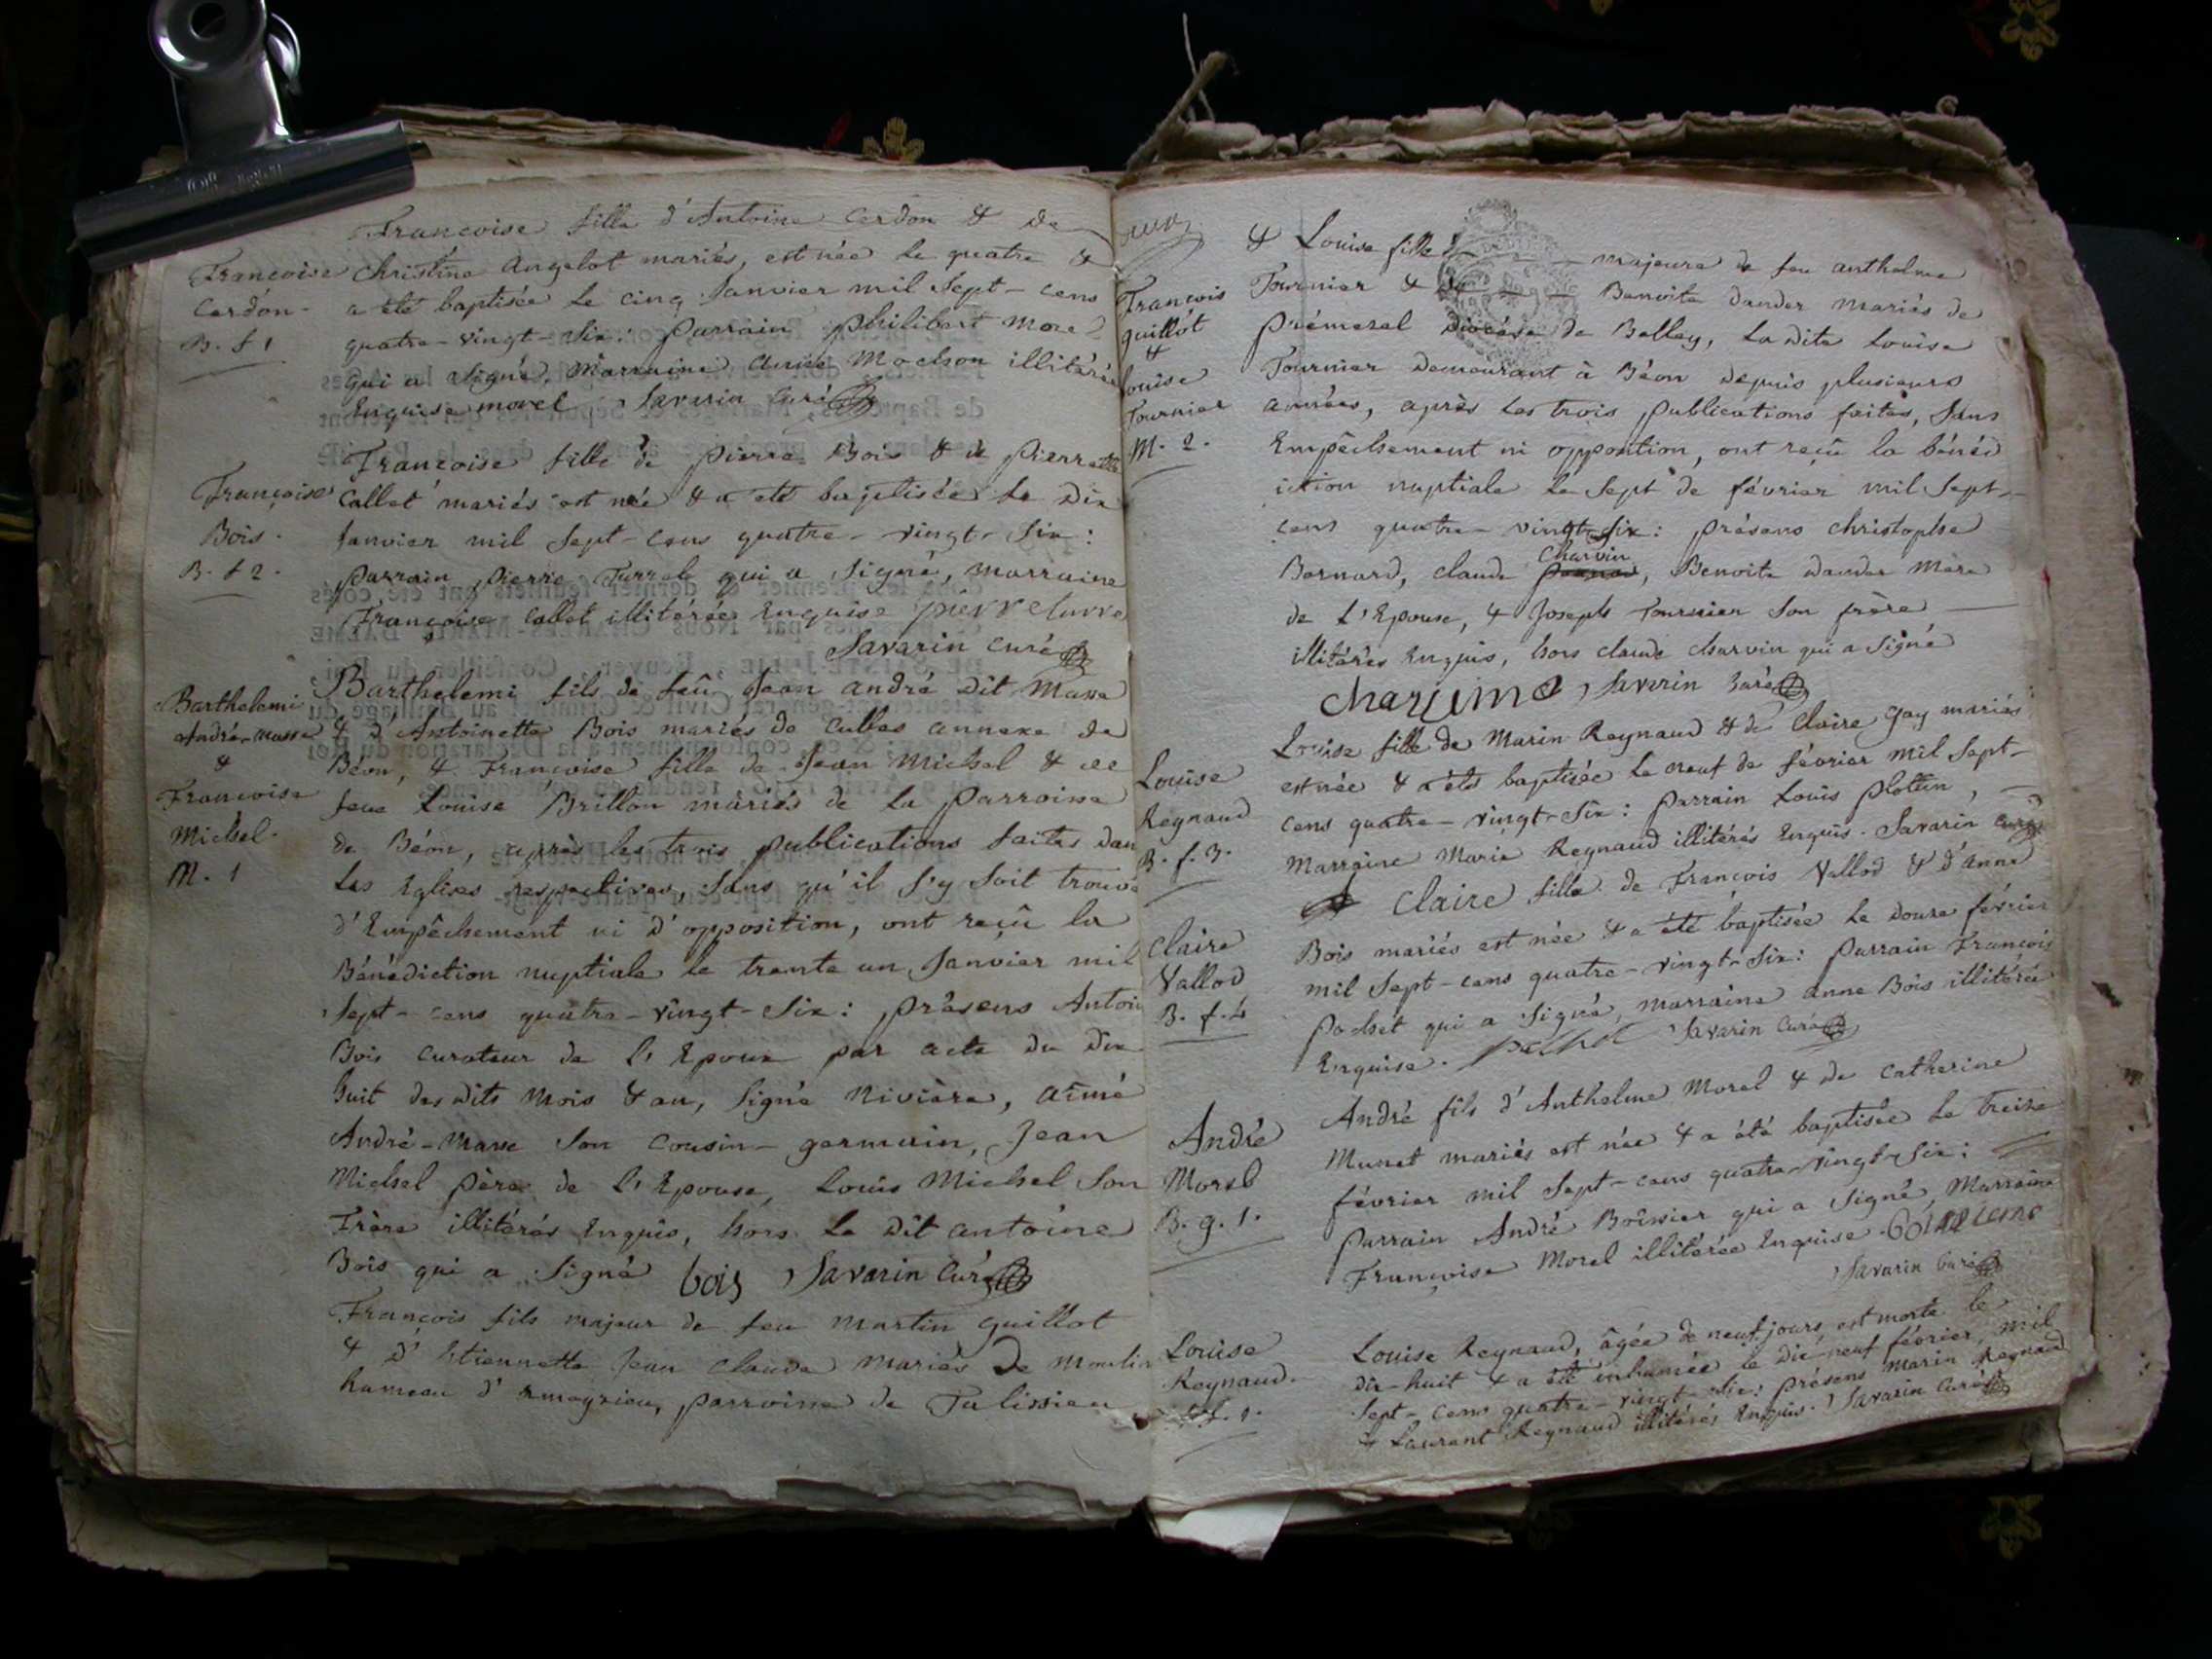 Françoise fille d'Antoine Cerdon & de
Françoise
Cerdon.
B. f 1
Christine Angelot mariés, est née le quatre &
a été baptisée le cinq Janvier mil Sept-cens
quatre-vingt-Six: parrain philibert morel
qui a signé, marraine Anne Mochon illitérée
Enquise morel Savarin Curé
Françoise fille de pierre Bois & de pierrette
Françoise
Bois.
B. f 2.
Callet mariés est née & a été baptisée le dix
Janvier mil Sept-cens quatre-vingt-Six:
parrain pierre Turrel qui a signé, marraine
Françoise Callet illitérée Enquise pierre turre
Savarin curé
Barthelemi fils de feû Jean andré dit Masse
Barthelemi
André-masse
&
Françoise
Michel.
M. 1
& d'Antoinette Bois mariés de culles annexe de
Béon, & Françoise fille de Jean Michel & de
feue Louise Brillon mariés de la parroisse
de Béon, après les trois publications faites dan
les Eglises respectives, Sans qu'il s'y soit trouvé
d'Empêchement ni d'opposition, ont reçû la
Bénédiction nuptiale le trente un Janvier mil
Sept-cens quatre-vingt-Six: présens Antoi
Bois curateur de l'Epoux par acte du dix
huit des dits mois & an, signé Nivière, aimé
André-Masse Son Cousin-germain, Jean
Michel père de l'Epouse, Louis Michel Son
Frère illitérés Enquis, hors le dit antoine
Bois qui a signé bois Savarin Curé
François fils majeur de feu martin guillot
& d'Etiennette Jean Claude mariés de moulin
hameau d'Ameyzieu, parroisse de Talissieu
François
guillot
&
louise
Tournier
M. 2.
& Louise fille majeure de feu anthelme
Tournier & de Benoite dander mariés de
prémezel diocèse de Belley, la dite Louise
Tournier demeurant à Béon depuis plusieurs
années, après les trois publications faites, Sans
Empêchement ni oppositîon, ont reçû la bénéd
iction nuptiale le Sept de février mil Sept-
cens quatre-vingt-Six: présens christophe
Bernard, claude Charvin, Benoite dander Mère
de l'Epouse, & Joseph Tournier Son frère
illitérés Enquis, hors claude charvin qui a signé
Savarin Curé
Louise fille de Marin Reynaud & de Claire Gay mariés
Louise
Reynaud
B. f. 3.
est née & a été baptisée le neuf de février mil Sept-
cens quatre-vingt-Six: parrain Louis plottin,
Marraine Marie Reynaud illitérés Enquis. Savarin curé
Claire fille de François Vallod & d'Anne
Claire
Vallod
B. f. 4
Bois mariés est née & a été baptisée le douze février
mil Sept-cens quatre-vingt-Six: parrain François
pochet qui a signé, marraine anne Bois illitérée
Enquise. pochet Savarin Curé
André fils d'Anthelme Morel & de catherine
André
Morel
B. g. 1.
Munet mariés est née & a été baptisée le treize
février mil Sept-cens quatre-vingt-Six:
parrain André Boissier qui a signé, Marraine
Françoise Morel illitérée Enquise.
Savarin Curé
Louise Reynaud, âgée de neuf jours est morte le
Louise
Reynaud.
dix-huit & a été inhumée le dix-neuf février, mil
Sept-cens quatre-vingt-Six: présens Marin Reynaud
& Laurent Reynaud illitérés Enquis. Savarin Curé